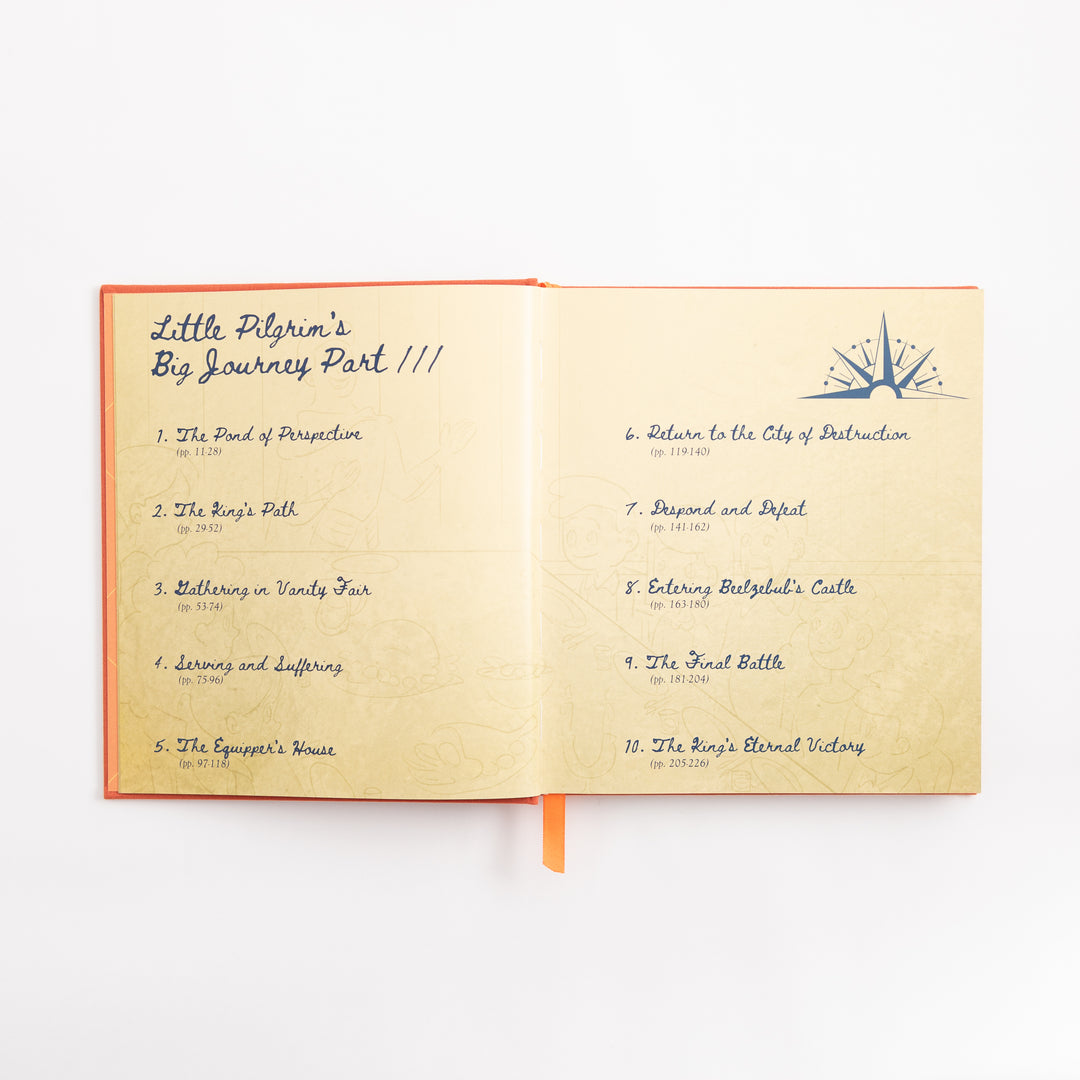 Little Pilgrim's
Big Journey Part III
1. The Pond of Perspective
(pp. 11-28)
2. The King's Path
(pp. 29-52)
3. Gathering in Vanity Fair
(pp. 53-74)
4. Serving and Suffering
(pp. 75-96)
5. The Equipper's House
(pp. 97-118)
6. Return to the City of Destruction
(pp. 119-140)
7. Despond and Defeat
(pp. 141-162)
8. Entering Beelzebub's Castle
(pp. 163-180)
9. The Final Battle
(pp. 181-204)
10. The King's Eternal Victory
(pp. 205-226)